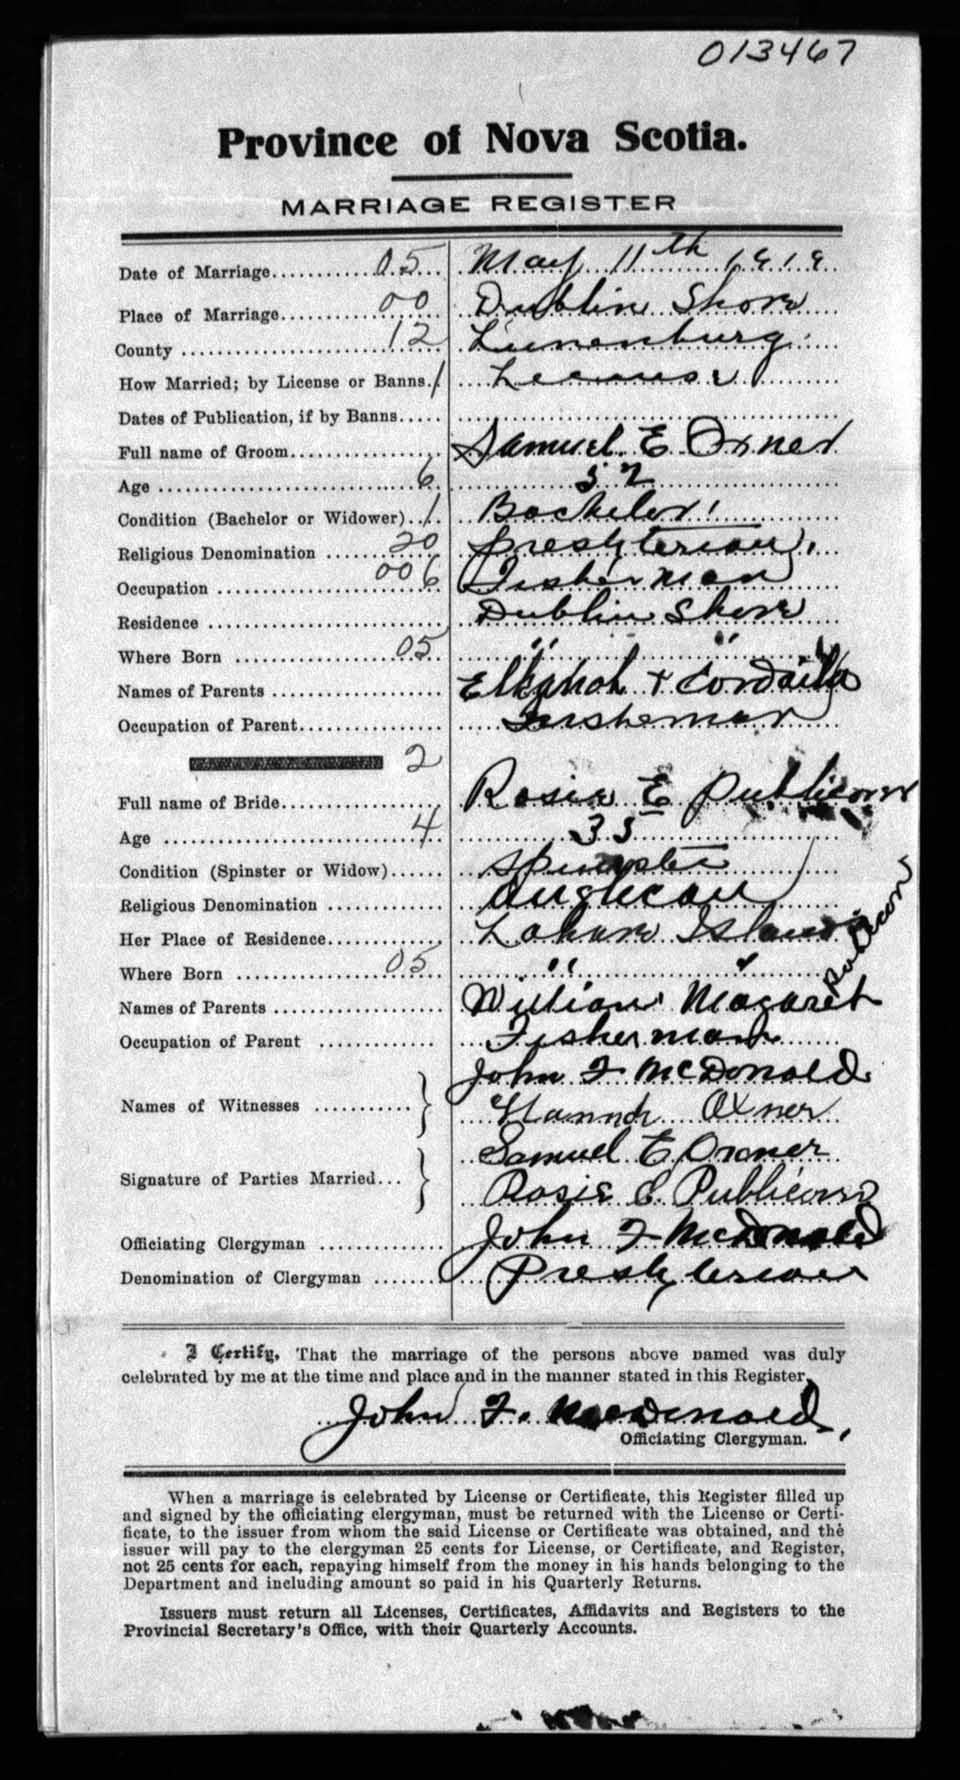 013467
Province of Nova Scotia.
MARRIAGE REGISTER
Date of Marriage 05 May 11th 1919
Place of Marriage 00 Dublin Shore
County 12 Lunenburg
How Married; by License or Banns. 1 License
Dates of Publication, if by Banns
Full name of Groom Samuel E Oxner
Age 6 52
Condition (Bachelor or Widower) 1 Bachelor
Religious Denomination 20 Presbyterian
Occupation 006 Fisherman
Residence Dublin Shore
Where Born 05 " "
Names of Parents Elkanah +
Occupation of Parent Fisherman
2
Full name of Bride Rosie E Publicover
Age 4 35
Condition (Spinster or Widow) Spinster
Religious Denomination Anglican
Her Place of Residence Lahave Islands
Where Born 05 " "
Names of Parents William Magaret Publicover
Occupation of Parent Fisherman
Names of Witnesses } John F McDonald
Hannah Oxner
Signature of Parties Married } Samuel E Oxner
Rosie E. Publicover
Officiating Clergyman John F McDonald
Denomination of Clergyman Presbyterian
I Certify, That the marriage of the persons above named was duly
celebrated by me at the time and place and in the manner stated in this Register.
John F. MacDonald,
Officiating Clergyman.
When a marriage is celebrated by License or Certificate, this Register filled up
and signed by the officiating clergyman, must be returned with the License or Certi-
ficate, to the issuer from whom the said License or Certificate was obtained, and the
issuer will pay to the clergyman 25 cents for License, or Certificate, and Register,
not 25 cents for each, repaying himself from the money in his hands belonging to the
Department and including amount so paid in his Quarterly Returns.
Issuers must return all Licenses, Certificates, Affidavits and Registers to the
Provincial Secretary's Office, with their Quarterly Accounts.